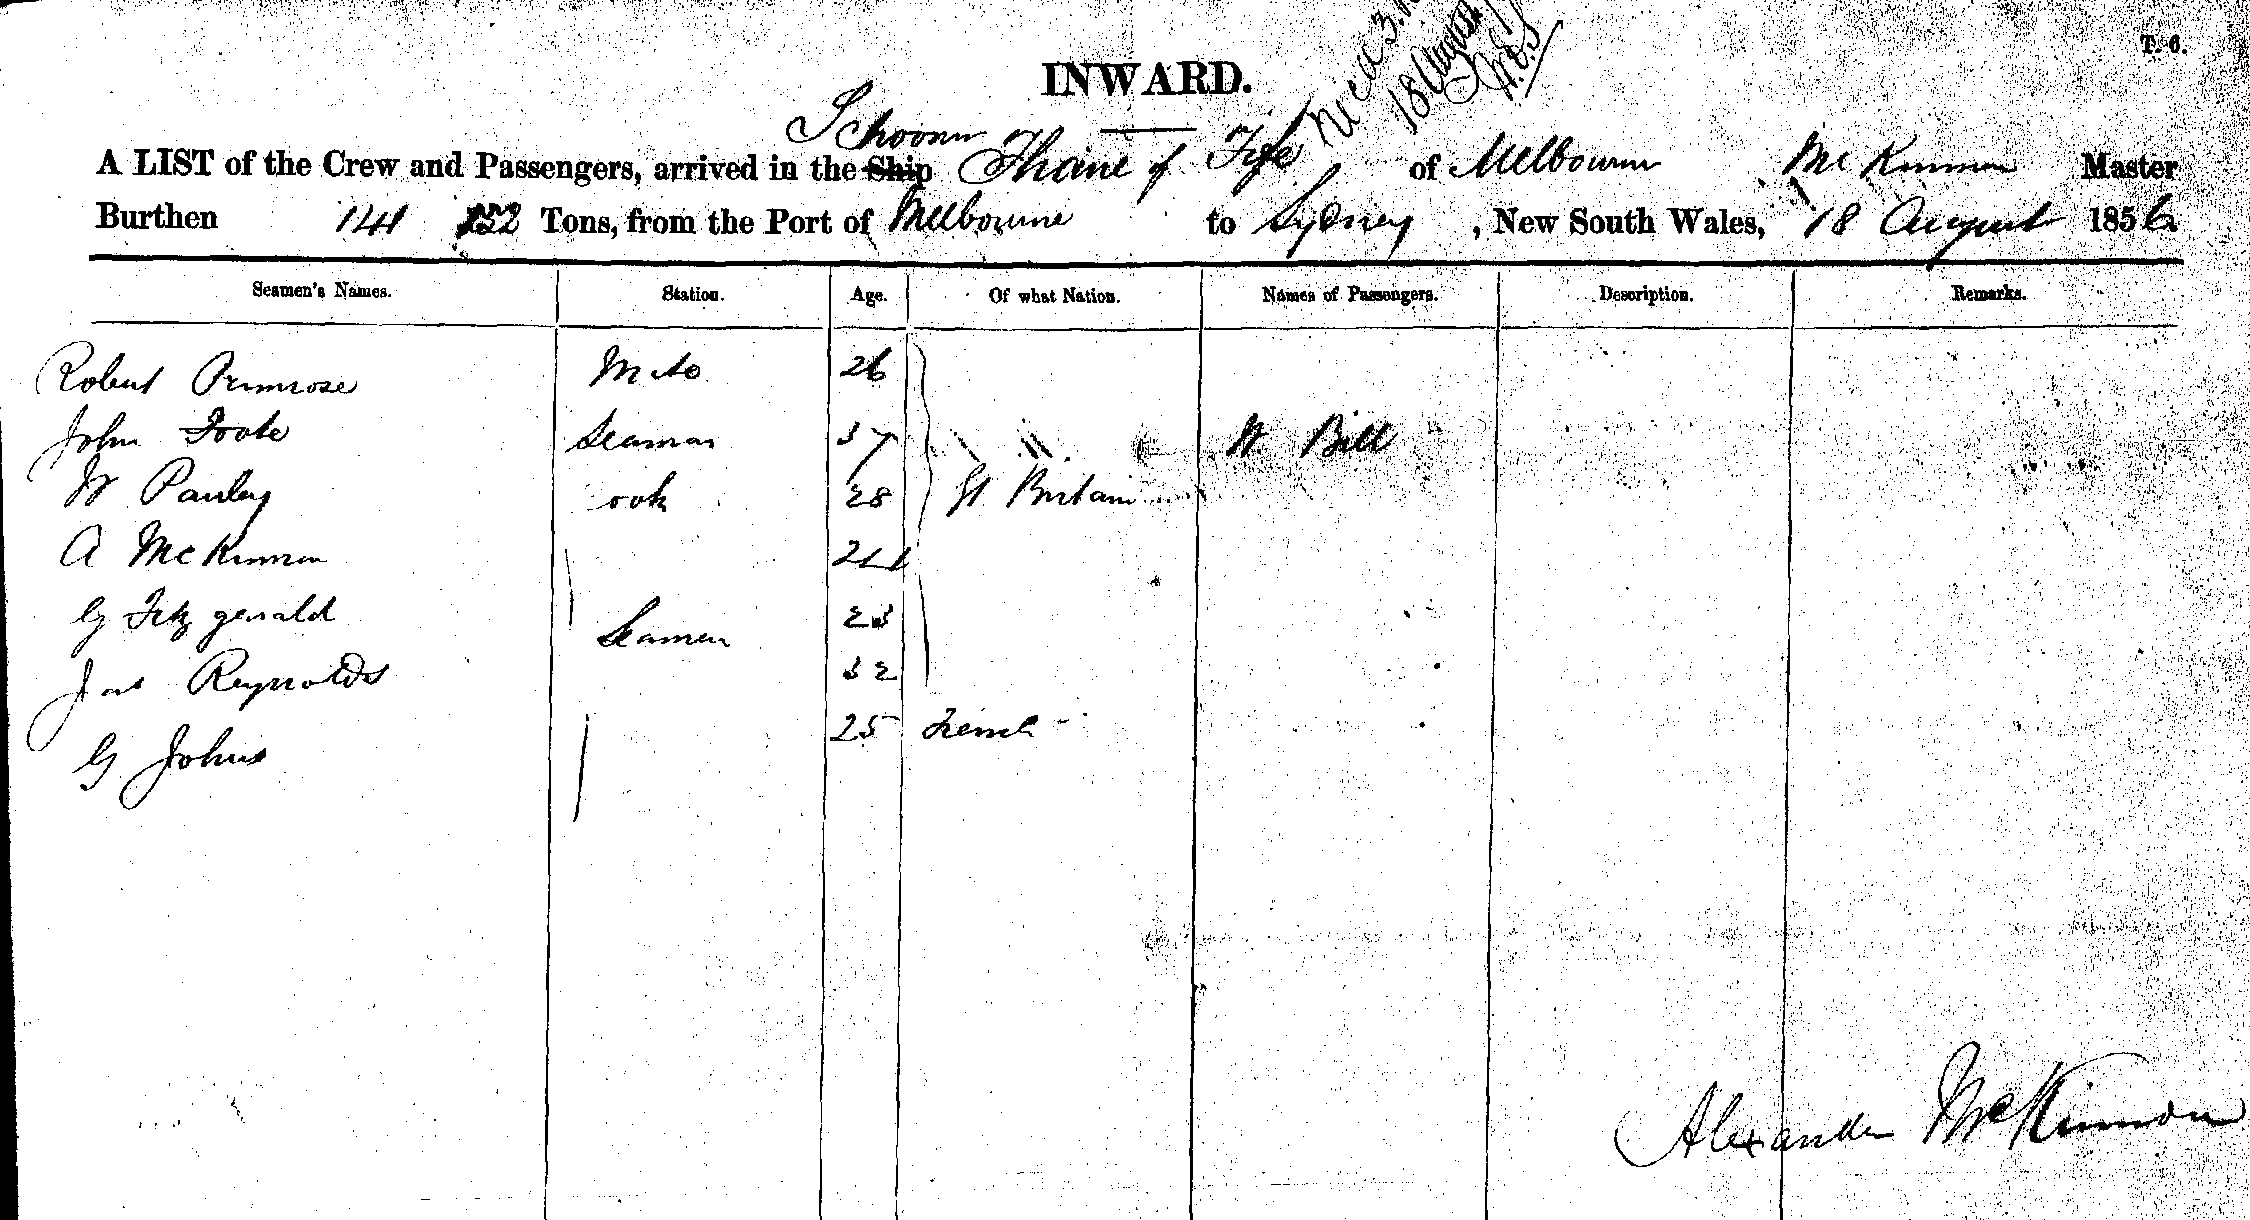 T. 6.
18 August
INWARD.
Schooner
A LIST of the Crew and Passengers, arrived in the Ship Thane of Fife of Melbourne McKinnon Master
Burthen 141 152 Tons, from the Port of Melbourne to Sydney, New South Wales, 18 August 1856
Seamen's Names. Station. Age. Of what Nation. Names of Passengers. Description. Remarks.
Robert Primrose Mate 26
John Foote Seaman 37 W Bell
W Pauley ook 28 Gt Britain
A McKinnon 21
G Fitzgerald Seamen 23
Jas Reynolds 32
G Johns 25 French
Alexander McKinnon